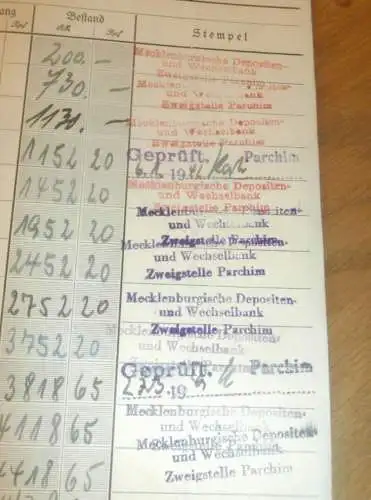 Bestand
Rpf
RM
Rpf
Stempel
200.—
Mecklenburgische Depositen-
und Wechselbank
Zweigstelle Parchim
730.—
und Wechselbank
Zweigstelle Parchim
1130.—
Mecklenburgische Depositen-
und Wechselbank
Zweigstelle Parchim
1152 20
Geprüft. Parchim
19
1452 20
Mecklenburgische Depositen-
und Wechselbank
Zweigstelle Parchim
1952 20
und Wechselbank
Zweigstelle Parchim
2452 20
und Wechselbank
Zweigstelle Parchim
2752 20
Mecklenburgische Depositen-
und Wechselbank
Zweigstelle Parchim
3752 20
und Wechselbank
3818 65
Geprüft. Parchim
19
4118 65
Mecklenburgische Depositen-
und Wechselbank
4418 65
Mecklenburgische Depositen-
und Wechselbank
Zweigstelle Parchim